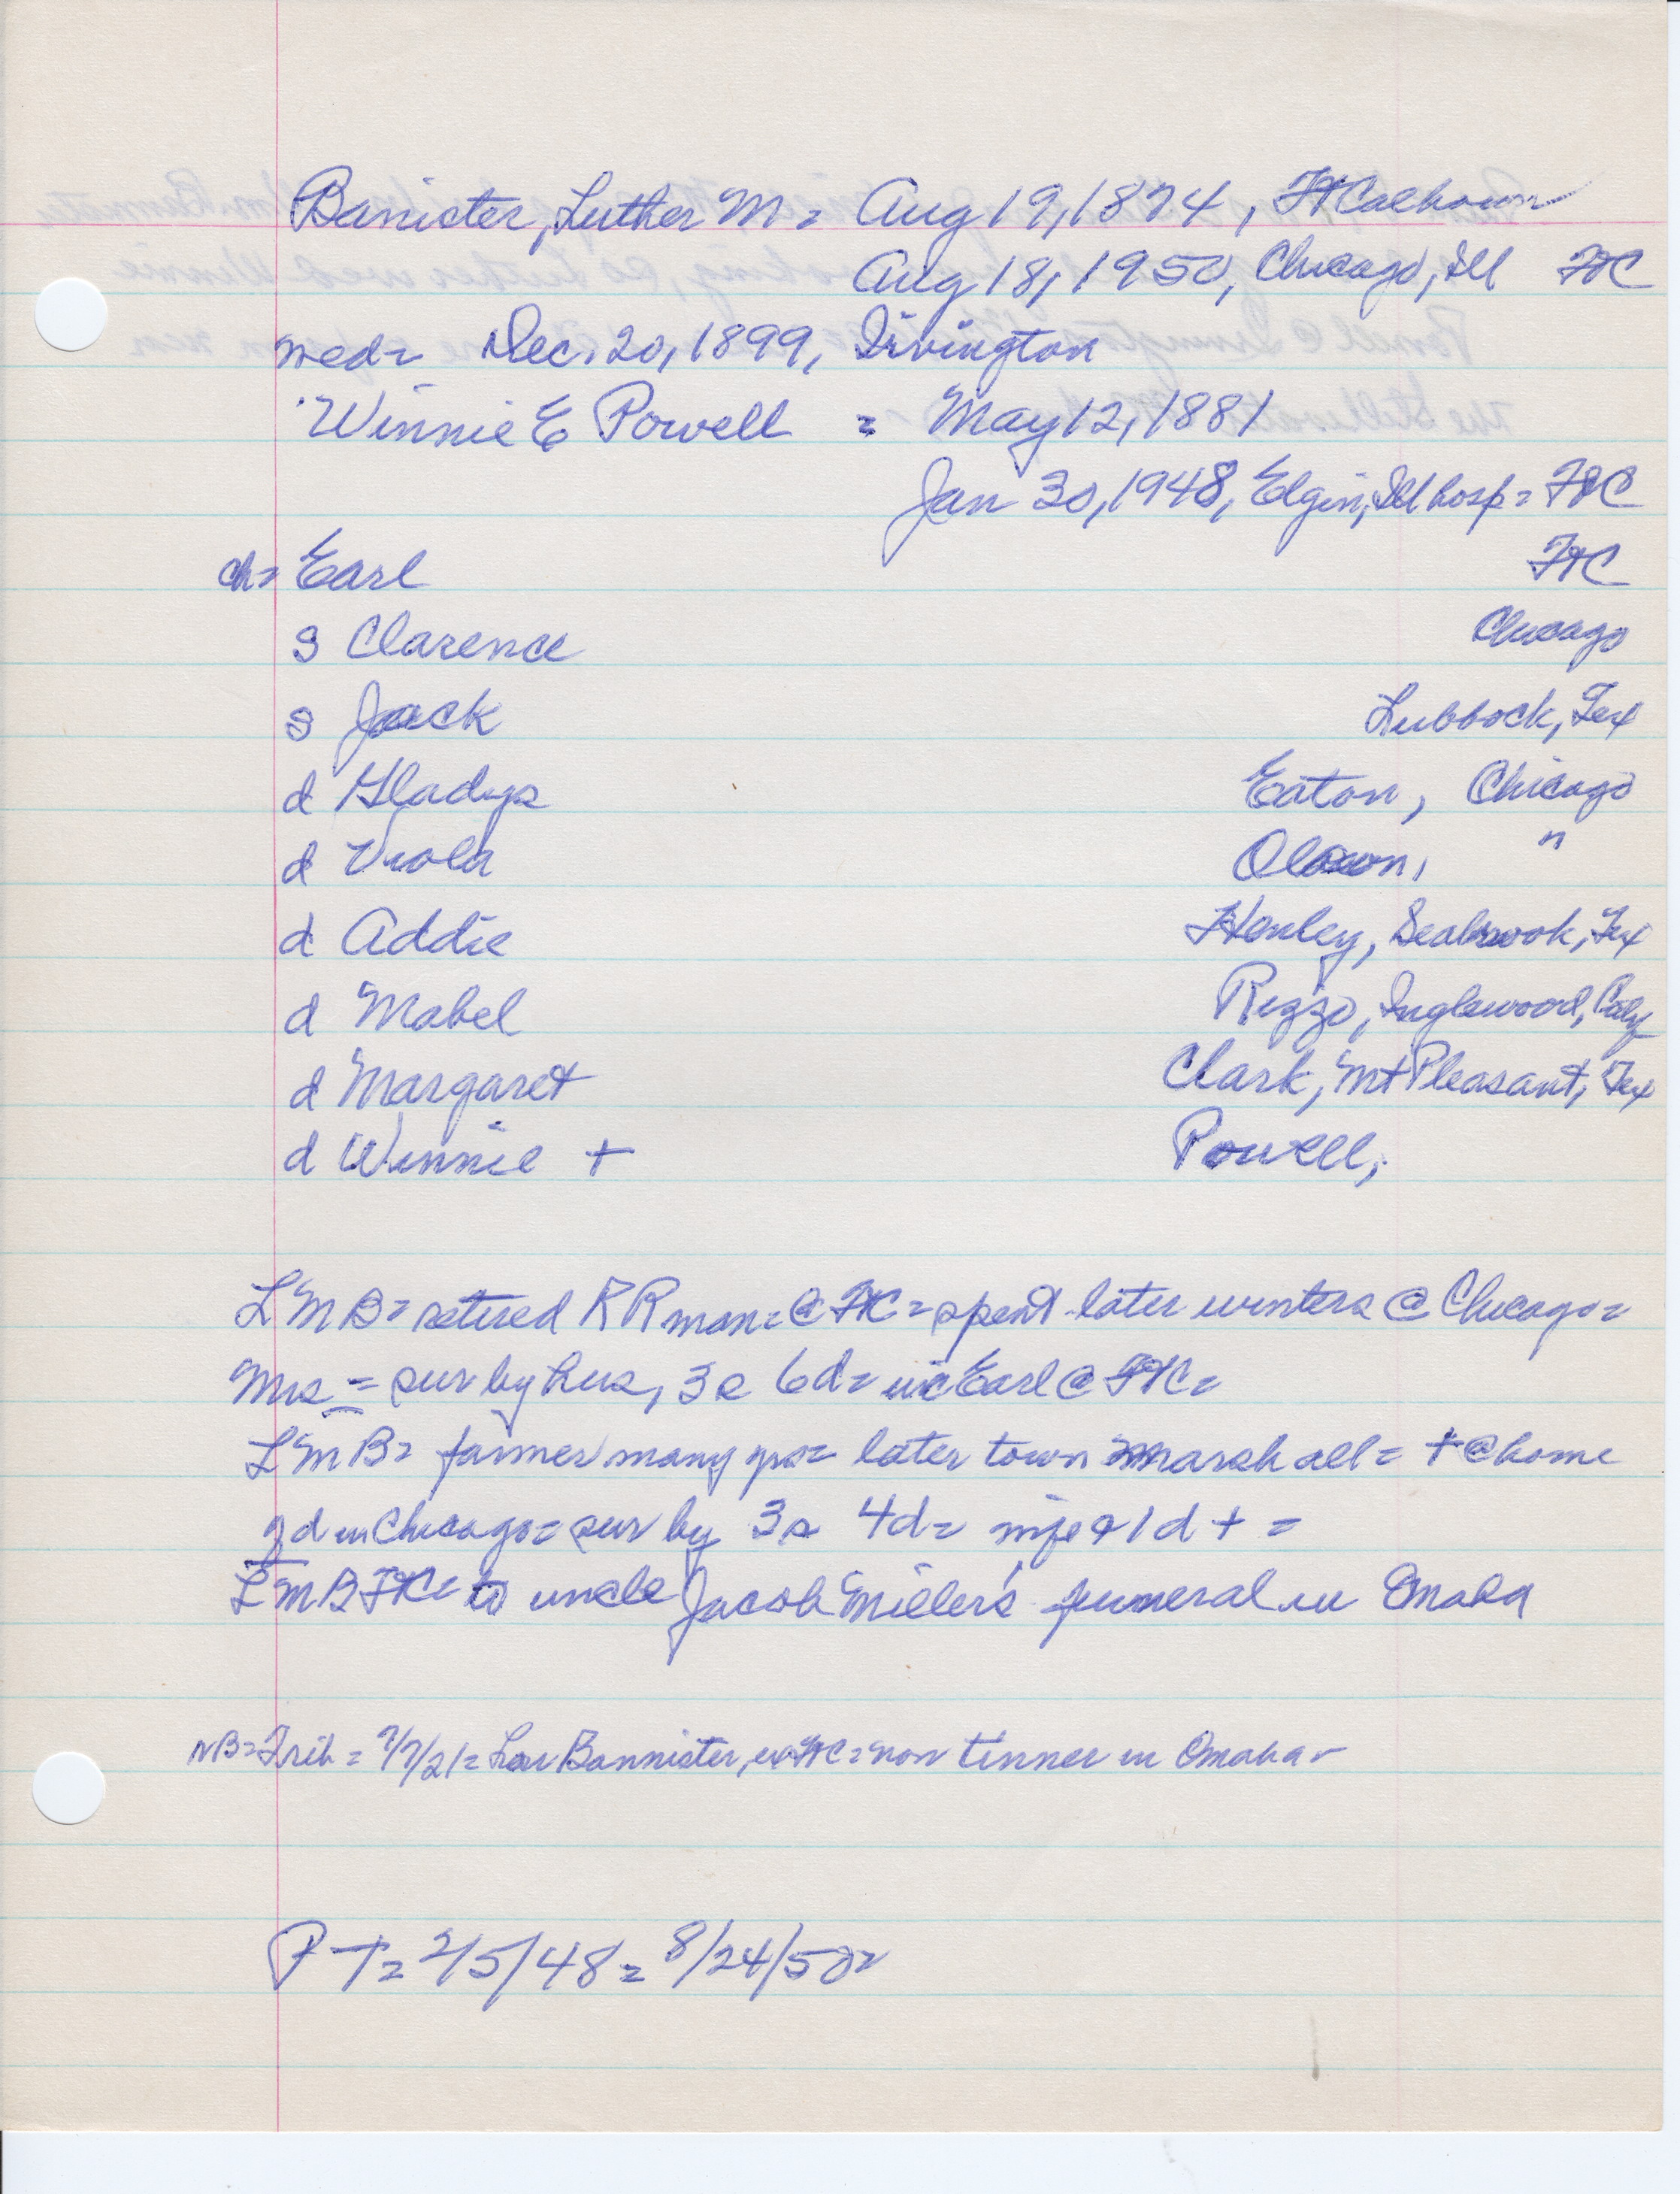 Banister, Luther M = Aug 19, 1874, Ft Calhoun
Aug 18, 1950, Chicago, Ill FtC
wed = Dec. 20, 1899, Irvington
Winnie E Powell = May 12, 1881
Jan 30, 1948, Elgin, Ill hosp = FtC
ch = Earl FtC
s Clarence Chicago
s Jack Lubbock, Tex
d Gladys Eaton, Chicago
d Viola "
d Addie Henley, Seabrook, Tex
d Mabel Rizzo, Inglewood, Calif
d Margaret Clark, Mt Pleasant, Tex
d Winnie + Powell,
L M B = retired R R man = @ FtC = spent later winters @ Chicago =
Mrs = sur by hus, 3 s 6 d = Earl @ FtC =
L M B = farmer many yrs = later town marshall = + @ home
d in Chicago = sur by 3 s 4 d = & 1 d + =
L M B FtC = to uncle Jacob Miller's funeral in Omaha
NB = Trib = 7/7/21 = Bannister, FtC = now tinner in Omaha -
P T = 2/5/48 = 8/24/50 =